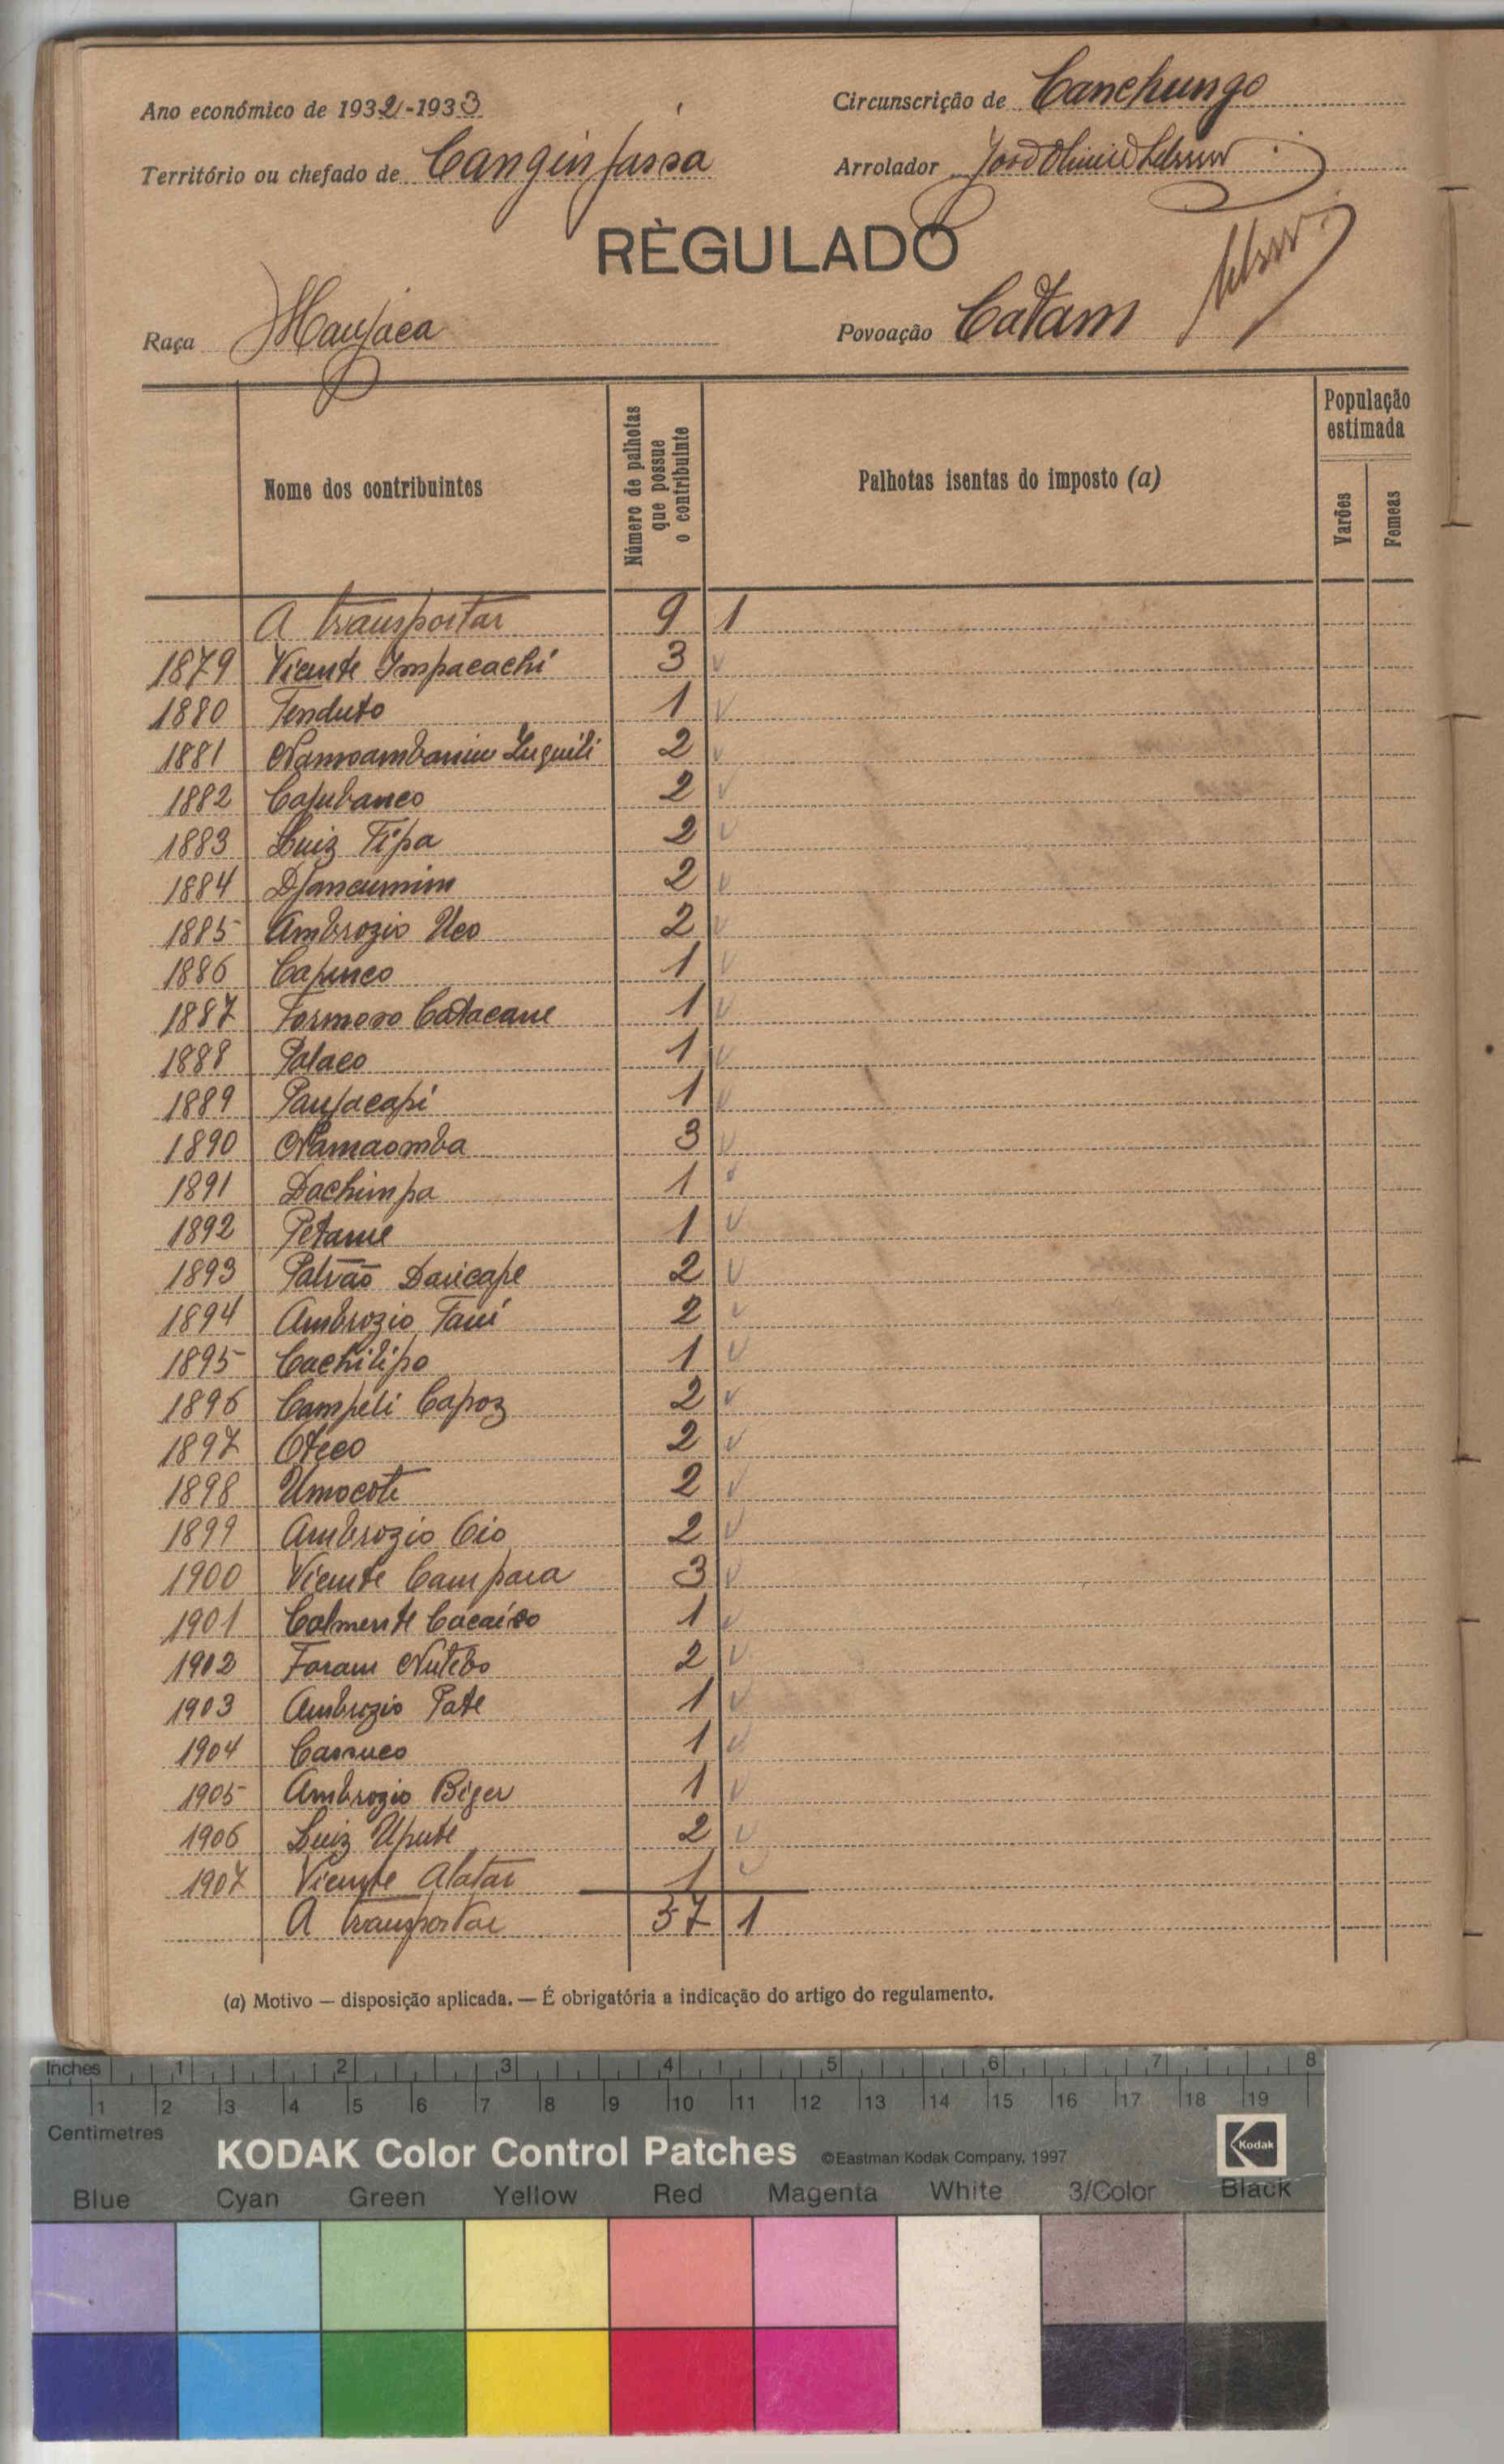 Ano económico de 1932-1933
Circunscrição de Canchungo
Território ou chefado de Canginjassa
Arrolador
RÈGULADO
Raça Manjaca
Povoação Catam
Nome dos contribuintes
Número de palhotas que possue o contribuinte
Palhotas isentas do imposto (a)
População estimada
Varões
Femeas
A transportar 9 1
1879 Vicente Impacachi 3
1880 Tenduto 1
1881 2
1882 Cajubanco 2
1883 Luiz Tipa 2
1884 Djancumim 2
1885 Ambrozio Uco 2
1886 Capinco 1
1887 Formoso Catacane 1
1888 Palaco 1
1889 Paujacapi 1
1890 Namaomba 3
1891 Dachimpa 1
1892 Petame 1
1893 Patrão Daricape 2
1894 Ambrozio Taui 2
1895 Cachilipo 1
1896 Campeli Capoz 2
1897 Oteco 2
1898 Umocote 2
1899 Ambrozio Cio 2
1900 Vicente Campara 3
1901 Calmente 1
1902 Faram 2
1903 Ambrozio Pate 1
1904 Cassuco 1
1905 Ambrozio Biger 1
1906 Luiz Upute 2
1907 Vicente Alatar 1
A transportar 57 1
(a) Motivo — disposição aplicada. — É obrigatória a indicação do artigo do regulamento.
Inches 1 2 3 4 5 6 7 8
1 2 3 4 5 6 7 8 9 10 11 12 13 14 15 16 17 18 19
Centimetres
KODAK Color Control Patches ©Eastman Kodak Company, 1997 Kodak
Blue Cyan Green Yellow Red Magenta White 3/Color Black